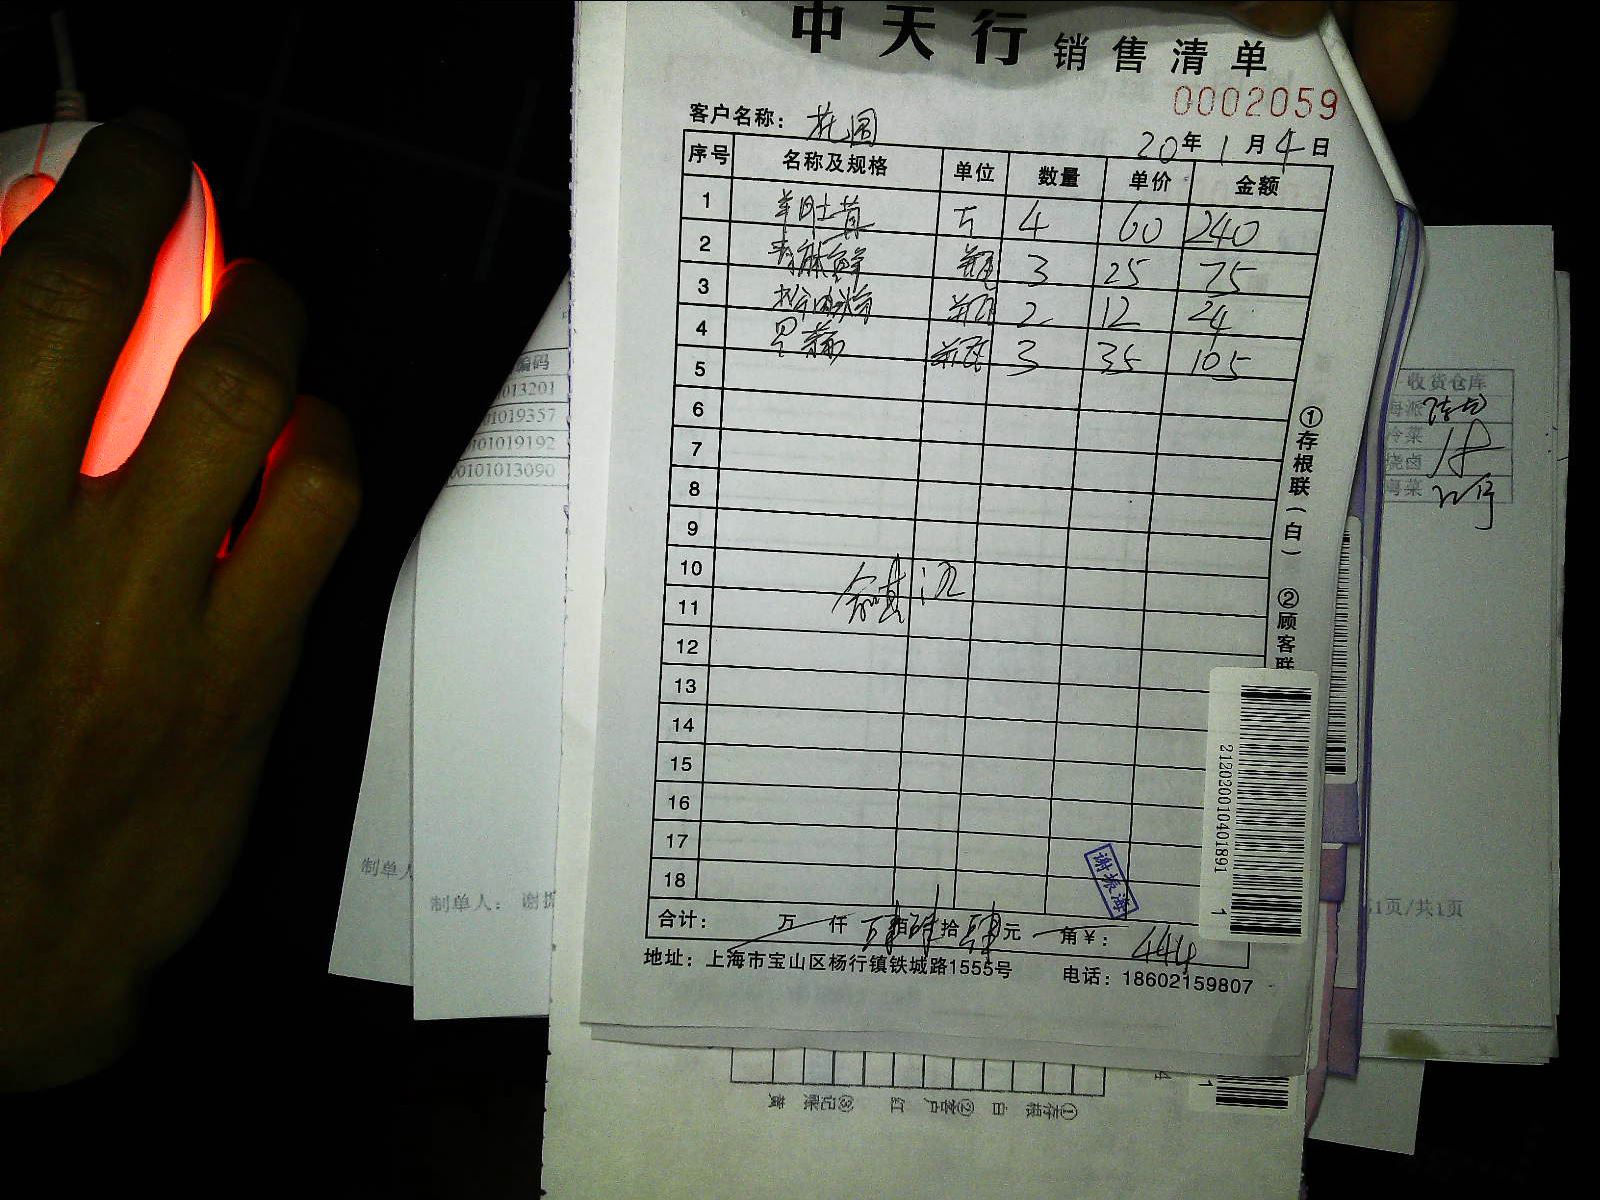 中天行 销售清单
0002059
客户名称：
20年1月4日
序号 名称及规格 单位 数量 单价 金额
1 羊肚茸 斤 4 60 240
2 青麻鲜 瓶 3 25 75
3 瓶 2 12 24
4 罗 瓶 3 35 105
5
6
7
8
9
10
11
12
13
14
15
16
17
18
合计： 万 仟 肆佰肆拾肆元 角 ¥： 444
地址：上海市宝山区杨行镇铁城路1555号 电话：18602159807
①存根联（白） ②顾客联
谢振海
2120200104018911
编码
013201
01019357
101019192
00101013090
收货仓库
海派
冷菜
烧卤
粤菜
制单人
制单人： 谢振
1页/共1页
①存根 白 ②客户 红 ③记账 黄